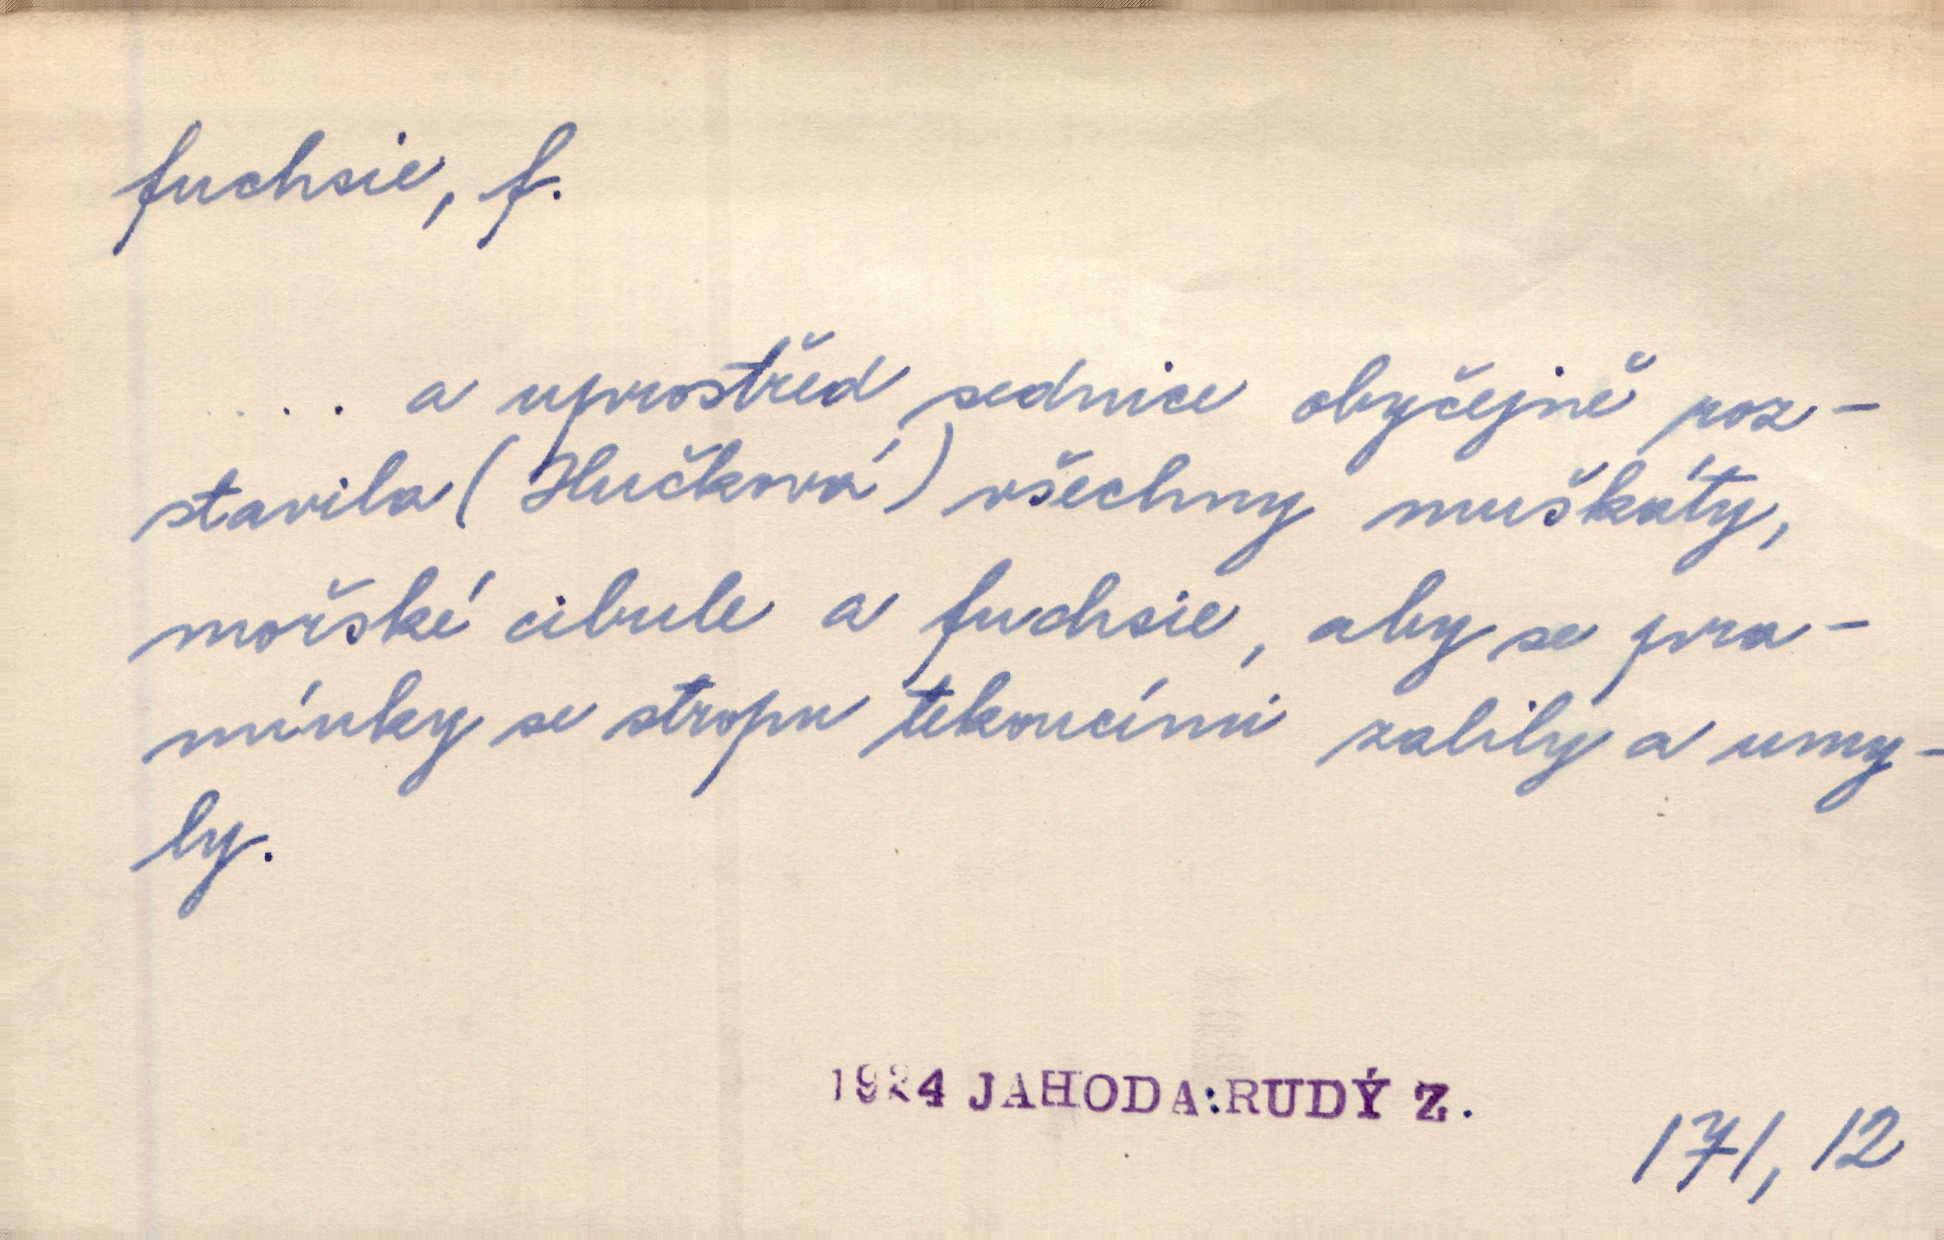 fuchsie, f.
.... a uprostřed sednice obyčejně roz-
stavila (Hučková) všechny muškáty,
mořské cibule a fuchsie, aby se pra-
mínky se stropu tekoucími zalily a umy-
ly.
1924 JAHODA: RUDÝ Z.
171, 12